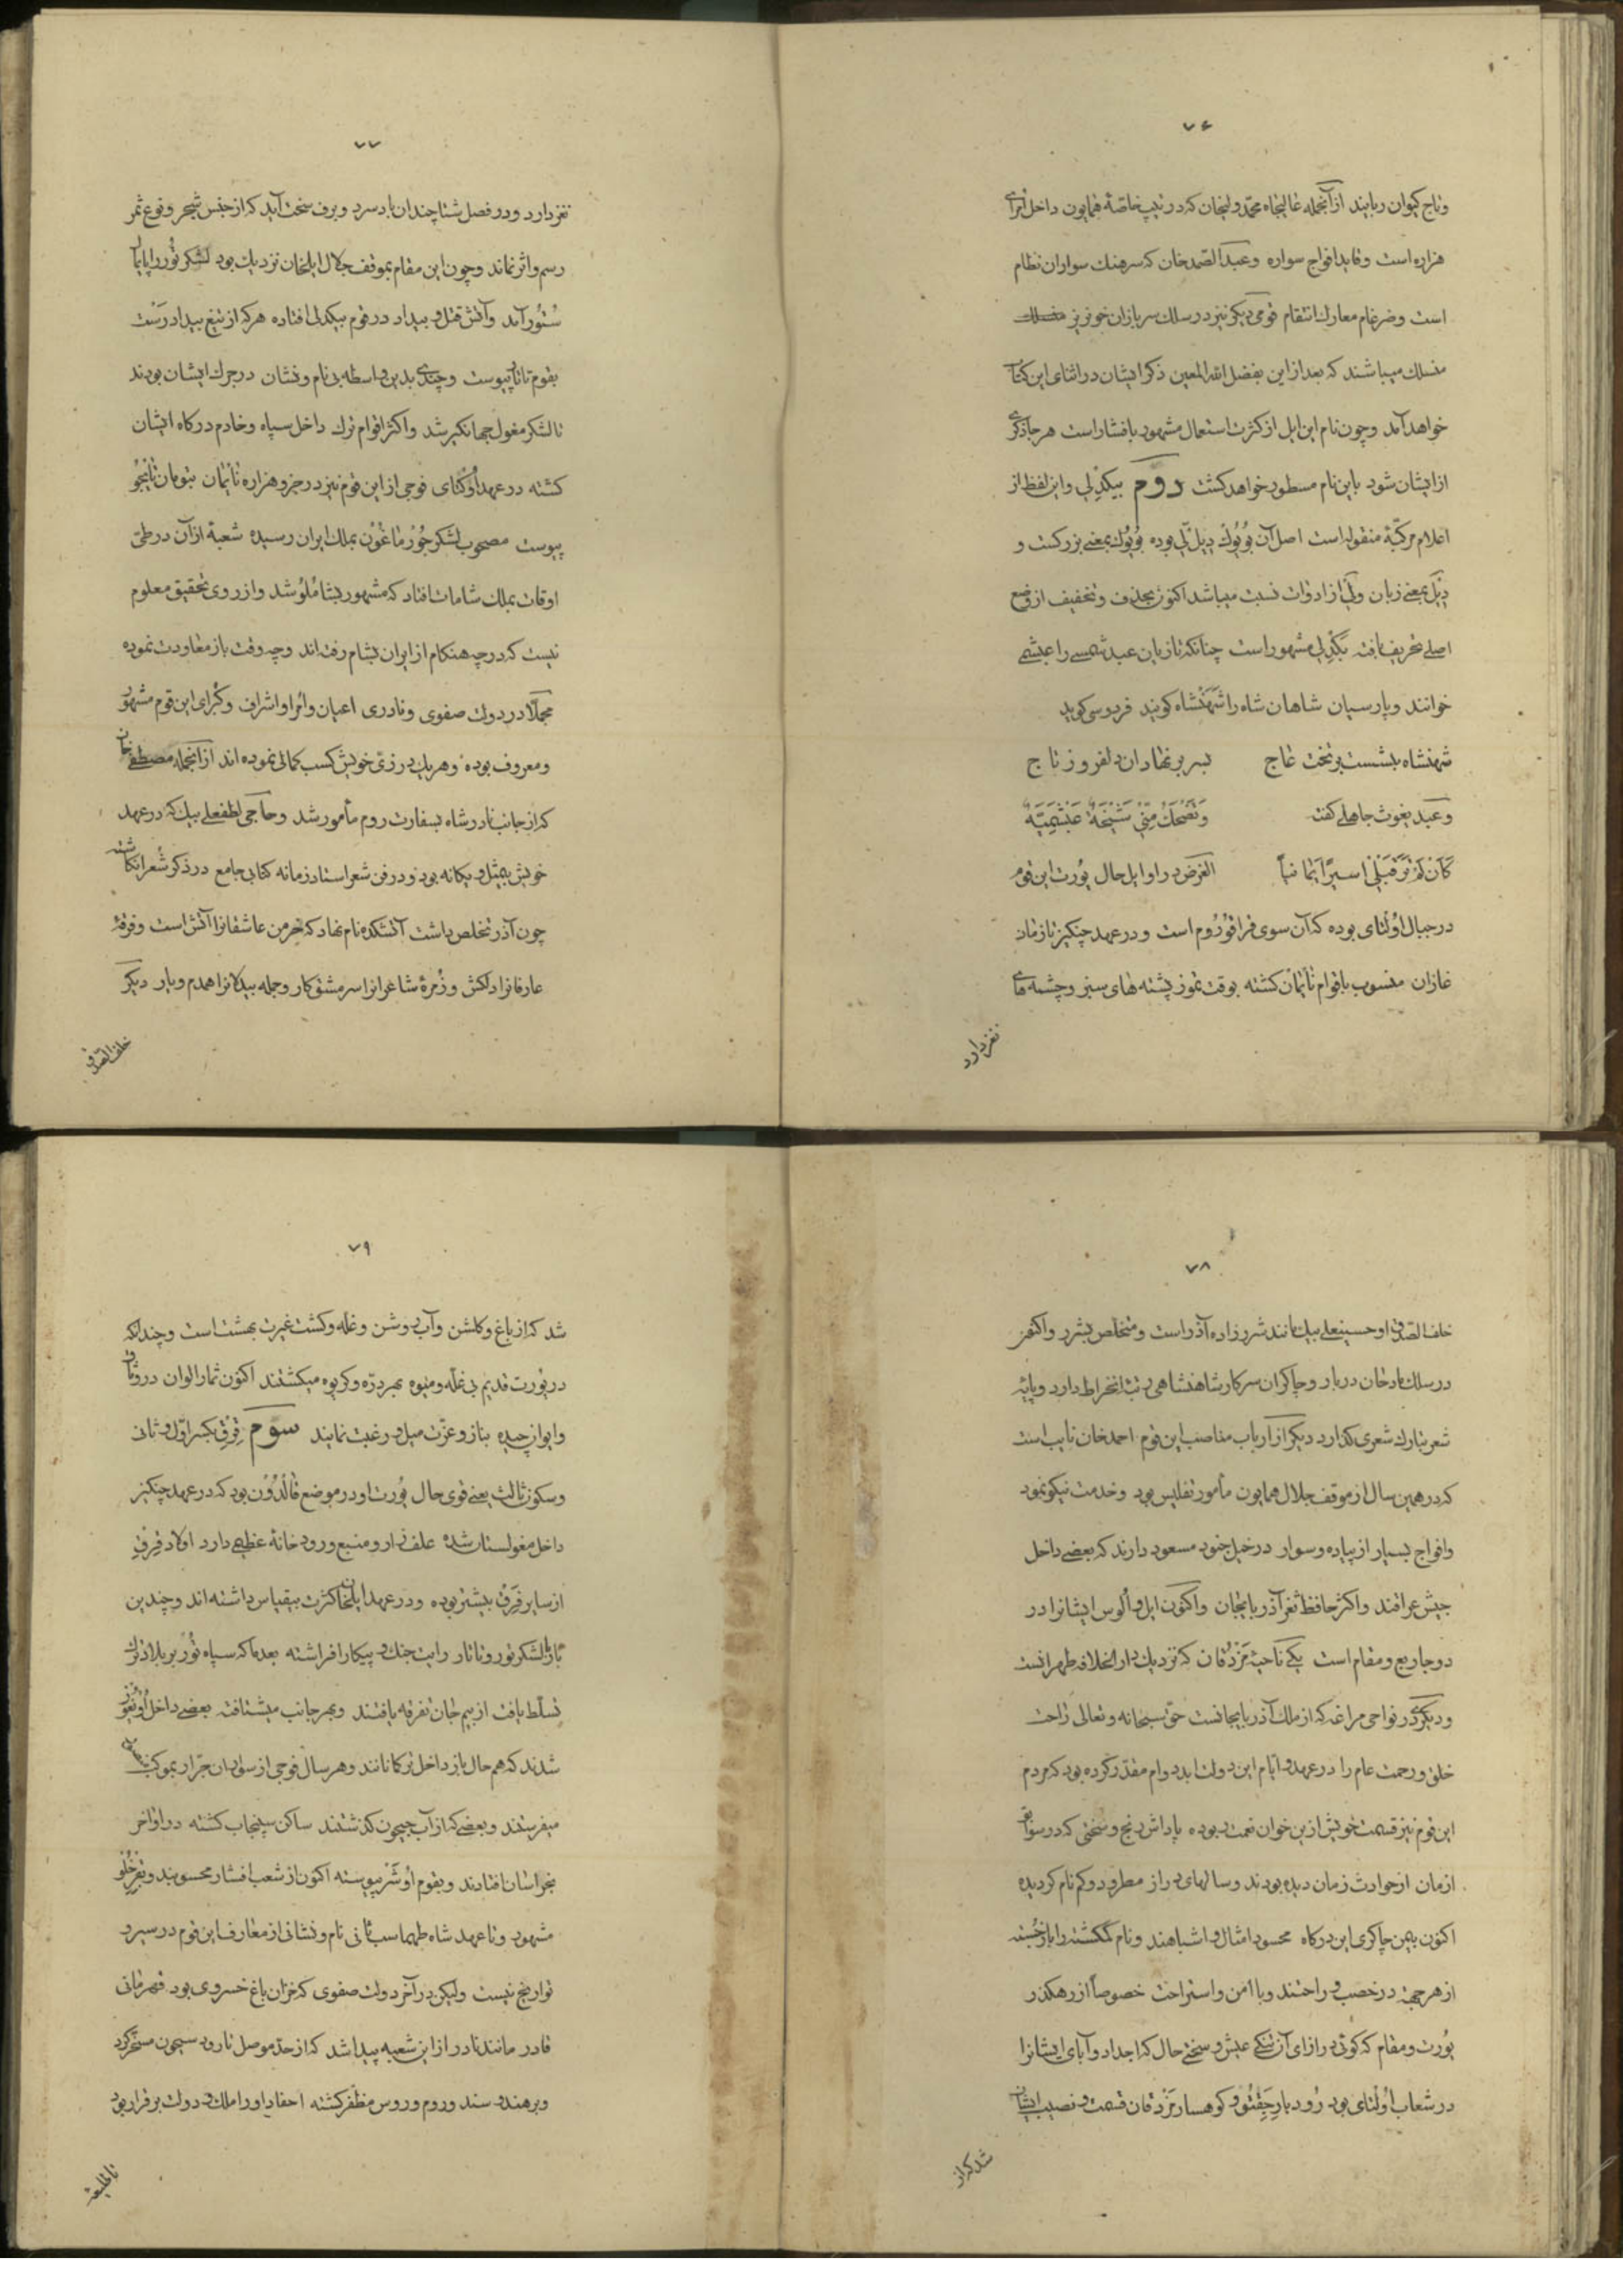 ۷۶
وتاج کیوان ربایند ازآنجمله عالیجاه محمدولیخان که در تیپ خاصهٔ همایون داخل امرای
هزاره است وقاید افواج سواره وعبدالصمدخان که سرهنک سواران نظام
است وضرغام معارک انتقام قومی دیکر نیز در سلک سربازان خونریز
منسلک میباشند که بعد از این بفضل الله المعین ذکر ایشان در اثنای این کتاب
خواهد آمد وچون نام این ایل از کثرت استعمال مشهور بافشار است هر جا ذکری
از ایشان شود باین نام مسطور خواهد کشت دوم بیکدلی واین لفظ از
اعلام مرکبهٔ منقوله است اصل آن بُویُوک دیل لی بوده بُویُوک بمعنی بزرکست و
دیل بمعنی زبان ولی از ادوات نسبت میباشد اکنون بحذف وتخفیف از وضع
اصلی تحریف یافته بیکدلی مشهور است چنانکه تازیان عبد شمسی را عبشمی
خوانند وپارسیان شاهان شاه را شهنشاه کویند فردوسی کوید
شهنشاه بنشست بر تخت عاج بسر بر نهاد آن دلفروز تاج
وعبد یغوث جاهلی کفت وَتَضْحَکُ مِنّی شَیْخَةٌ عَبْشَمِیّةٌ
کَأنْ لَمْ تَرَ قَبْلی اسیراً یَمانیاً الغرض در اوایل حال یُورت این قوم
در جبال اُولتای بوده که آن سوی قراقوروم است ودر عهد چنکیز تا زمان
غازان منسوب باقوام نایمان کشته بوقت تموز پشته های سبز وچشمه های
نغز دارد
۷۷
نغز دارد ودر فصل شتا چندان باد سرد وبرف سخت آید که از جنس شجر ونوع ثمر
رسم واثر نماند وچون این مقام بموقف جلال ایلخان نزدیک بود لشکر تُور را پایمال
سُتُور آمد وآتش قتل وبیداد در قوم بیکدلی افتاده هر که از تیغ بیداد رَست
بقوم تاتار پیوست وچندی بدین واسطه بی نام ونشان در جرک ایشان بودند
تا لشکر مغول جهانکیر شد واکثر اقوام ترک داخل سپاه وخادم درکاه ایشان
کشته در عهد اُوکتای فوجی از این قوم نیز در جزو هزاره نایمان بتومان تایجُو
پیوست مصحوب لشکر جُورماغُون بملک ایران رسیده شعبهٔ از آن در طی
اوقات بملک شامات افتاد که مشهور بشاملُو شد واز روی تحقیق معلوم
نیست که در چه هنکام از ایران بشام رفته اند وچه وقت باز معاودت نموده
مجملا در دولت صفوی ونادری اعیان وامرا واشراف وکبرای این قوم مشهور
ومعروف بوده وهر یک در زی خویش کسب کمالی نموده اند از انجمله مصطفی خان
که از جانب نادرشاه بسفارت روم مأمور شد وحاجی لطفعلی بیک که در عهد
خویش بیمثل ویکانه بود ودر فن شعر استاد زمانه کتابی جامع در ذکر شعرا نکاشته
چون آذر تخلص داشت آتشکده نام نهاد که خرمن عاشقانرا آتش است وفرقهٔ
عارفانرا دلکش وزُمرهٔ شاعرانرا سرمشق کار وجمله بیدلانرا همدم ویار دیکر
خلف الصدق
۷۸
خلف الصدق او حسینعلی بیک مانند شرر زاده آذر است ومتخلص بشرر واکنون
در سلک مادحان دربار وچاکران سرکار شاهنشاهی رتبت انخراط دارد وپایهٔ
شعر بتارک شعری کذارد دیکر از ارباب مناصب این قوم احمدخان نایب است
که در همین سال از موقف جلال همایون مأمور تفلیس بود وخدمت نیکو نمود
وافواج بسیار از پیاده وسوار در خیل جنود مسعود دارند که بعضی داخل
جیش عراقند واکثر حافظ ثغر آذربایجان واکنون ایل واُلوس ایشانرا در
دو جا ربع ومقام است یکی ناحیهٔ مَزْدَقان که نزدیک دارالخلافه طهرانست
ودیکری در نواحی مراغه که از ملک آذربایجانست حق سبحانه وتعالی راحت
خلق ورحمت عام را در عهد وایام این دولت ابد دوام مقدر کرده بود که مردم
این قوم نیز قسمت خویش از ین خوان نعمت ربوده پاداش رنج وسختی که در سوابق
ازمان از حوادث زمان دیده بودند وسالهای دراز مطرود وکم نام کردیده
اکنون بیمن چاکری این درکاه محسود امثال واشباهند ونام کمکشته را باز جُسته
از هر جهة در خصب وراحتند وبا امن واستراحت خصوصاً از رهکذر
یُورت ومقام که کوئی در ازای آن تنکی عیش وسختی حال که اجداد وآبای ایشانرا
در شعاب اُولتای بود رُودبار جَغَتُو وکوهسار مَزْدَقان قسمت ونصیب ایشان
شد که از
۷۹
شد که از باغ وکلشن وآب روشن وغله وکشت غیرت بهشت است وچندانکه
در یُورت قدیم بی غلّه ومیوه بهر درّه وکریوه میکشتند اکنون ثمار الوان در رواق
وایوان چیده بناز وعزت میل ورغبت نمایند سوم قِرِق بکسر اول وثانی
وسکون ثالث یعنی قوی حال یُورت او در موضع قالْدُون بود که در عهد چنکیز
داخل مغولستان شده علف زار ومنبع ورودخانهٔ عظیمی دارد اولاد قِرِق
از سایر فِرَق بیشتر بوده ودر عهد ایلخان کثرت بیقیاس داشته اند وچندین
بار با لشکر تور وتاتار رایت جنک وپیکار افراشته بعد ما که سپاه تُور بر بلاد ترک
تسلّط یافت از بیم جان تفرقه یافتند وبهر جانب میشتافته بعضی داخل اُویغور
شدند که هم حال باز داخل ترکانانند وهر سال فوجی از سواران جرّار بموکب
میفرستند وبعضی که از آب جیحون کذشتند ساکن سپنجاب کشته در اواخر
بخراسان افتادند وبقوم اوشَر پیوسته اکنون از شعب افشار محسوبند وبقِرِخْلُو
مشهور وتا عهد شاه طهماسب ثانی نام ونشانی از معارف این قوم در سیر و
تواریخ نیست ولیکن در آخر دولت صفوی که خزان باغ خسروی بود قهرمانی
قادر مانند نادر از این شعبه پیدا شد که از حد موصل تا رود سیحون مسخر کرد
وبر هند وسند وروم وروس مظفر کشته احفاد او را ملک ودولت برقرار بود
تا طلیعهٔ